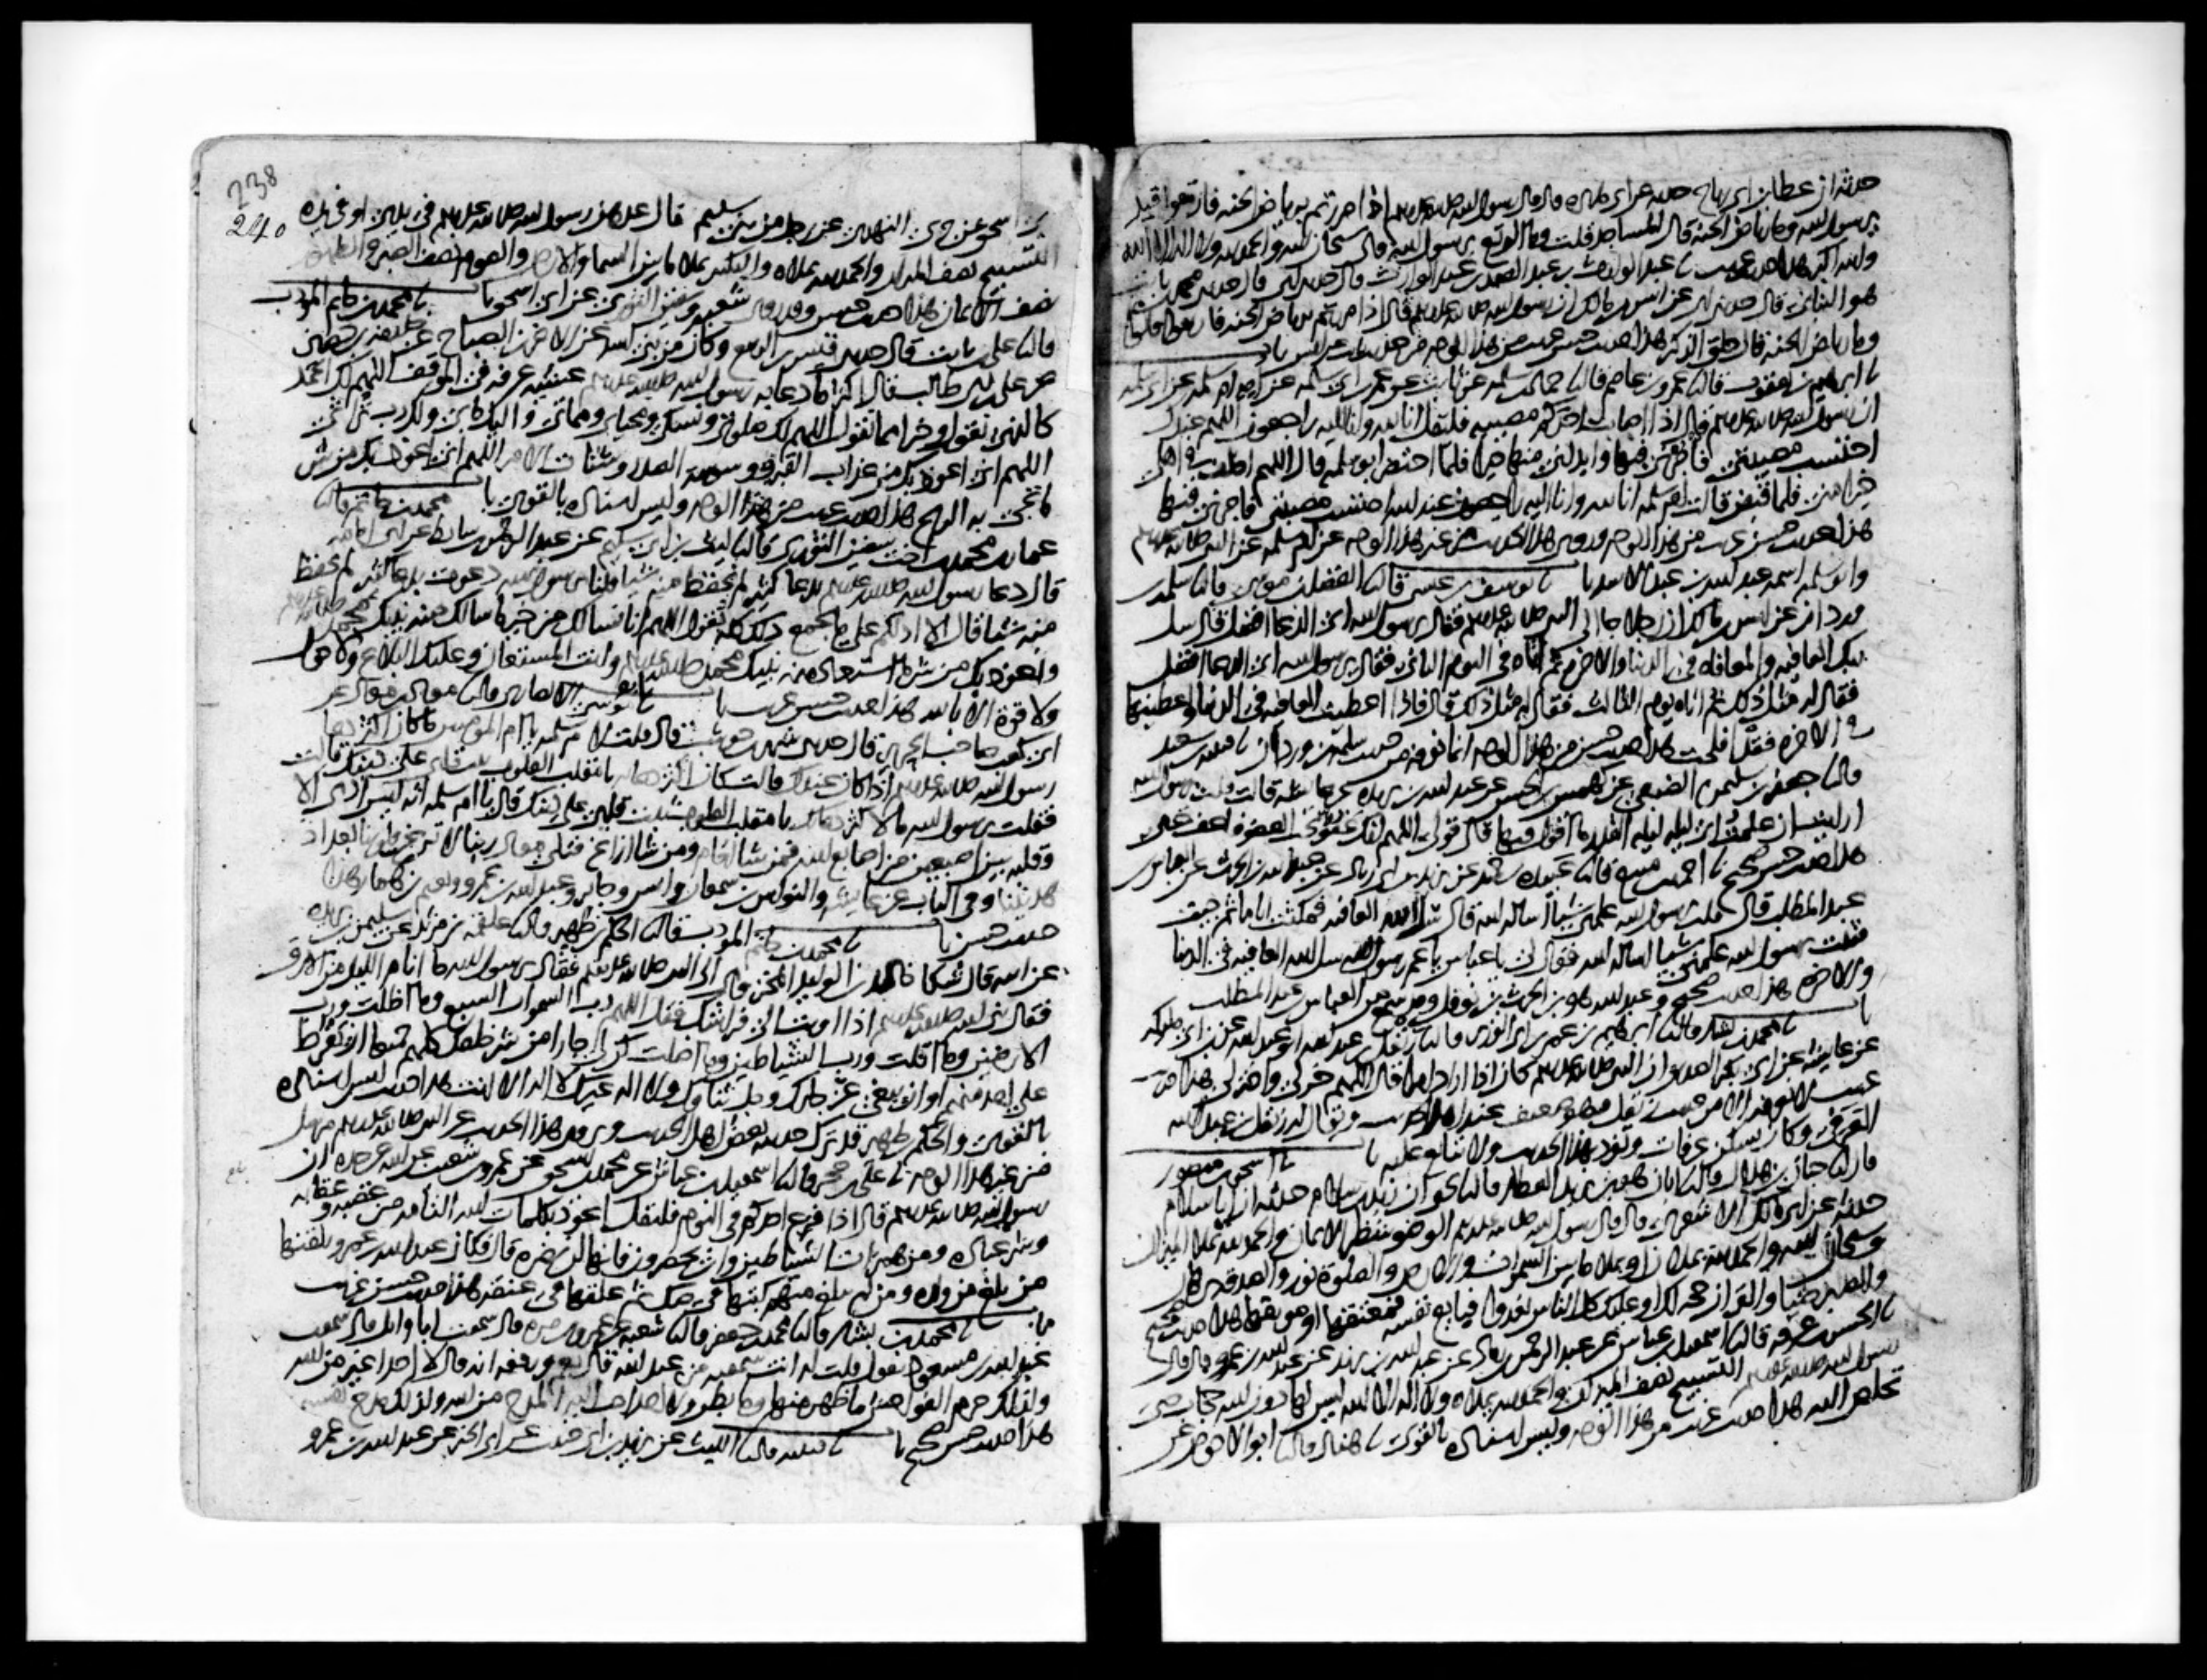 حدثه ان عطا بن ابي رباح حدثه عن ابي هريره قال قال رسول الله صلى الله عليه وسلم اذا مررتم برياض الجنه فارتعوا قيل
يرسول الله وما رياض الجنه قال المساجد قلت وما الرتع يرسول الله قال سبحان الله والحمد لله ولا اله الا الله
والله اكبر هذا حديث غريب نا عبد الوارث بن عبد الصمد بن عبد الوارث قال حدثني ابي قال حدثني محمد بن ثابت
هو البناني قال حدثني ابي عن انس بن مالك ان رسول الله صلى الله عليه وسلم قال اذا مررتم برياض الجنه فارتعوا قالوا
وما رياض الجنه قال حلق الذكر هذا حديث حسن غريب من هذا الوجه من حديث ثابت عن انس باب
نا ابرهيم بن يعقوب قال نا عمرو بن عاصم قال نا حماد بن سلمه عن ثابت عن عمر بن ابي سلمه عن امه ام سلمه عن ابي سلمه
ان رسول الله صلى الله عليه وسلم قال اذا اصاب احدكم مصيبه فليقل انا لله وانا اليه راجعون اللهم عندك
احتسبت مصيبتي فأجرني فيها وابدلني منها خيرا فلما احتضر ابو سلمه قال اللهم اخلف في اهلي
خيرا مني فلما قبض قالت ام سلمه انا لله وانا اليه راجعون عند الله احتسبت مصيبتي فاجرني فيها
هذا حديث حسن غريب من هذا الوجه وروي هذا الحديث من غير هذا الوجه عن ام سلمه عن النبي صلى الله عليه وسلم
وابو سلمه اسمه عبد الله بن عبد الاسد باب نا يوسف بن عيسى قال نا الفضل بن موسى قال نا سلمه بن
وردان عن انس بن مالك ان رجلا جا الى النبي صلى الله عليه وسلم فقال يرسول الله اي الدعا افضل قال سل
ربك العافيه والمعافاه في الدنيا والاخره ثم اتاه في اليوم الثاني فقال يرسول الله اي الدعا افضل
فقال له مثل ذلك ثم اتاه يوم الثالث فقال له مثل ذلك قال فاذا اعطيت العافيه في الدنيا واعطيتها
في الاخره فقد افلحت هذا حديث حسن من هذا الوجه انما نعرفه من حديث سلمه بن وردان نا قتيبه بن سعيد
قال نا جعفر بن سليمن الضبعي عن كهمس بن الحسن عن عبد الله بن بريده عن عايشه قالت قلت يرسول الله
ارايت ان علمت اي ليله ليله القدر ما اقول فيها قال قولي اللهم انك عفو تحب العفو فاعف عني
هذا حديث حسن صحيح نا احمد بن منيع قال نا عبيده بن حميد عن يزيد بن ابي زياد عن عبد الله بن الحرث عن العباس بن
عبد المطلب قال قلت يرسول الله علمني شيا اساله الله قال سل الله العافيه فمكثت اياما ثم جيت
فقلت يرسول الله علمني شيا اساله الله فقال لي يا عباس يا عم رسول الله سل الله العافيه في الدنيا
والاخره هذا حديث صحيح وعبد الله هو بن الحرث بن نوفل وقد سمع من العباس بن عبد المطلب
باب نا محمد بن بشار قال نا ابرهيم بن عمر بن ابي الوزير قال نا زنفل بن عبد الله ابو عبد الله عن ابن ابي مليكه
عن عايشه عن ابي بكر الصديق ان النبي صلى الله عليه وسلم كان اذا اراد امرا قال اللهم خر لي واختر لي هذا حديث
غريب لا نعرفه الا من حديث زنفل وهو ضعيف عند اهل الحديث ويقال له زنفل بن عبد الله
العرفي وكان يسكن عرفات وتفرد بهذا الحديث ولا يتابع عليه باب نا اسحق بن منصور
قال نا حبان بن هلال قال نا ابان هو بن يزيد العطار قال نا يحيى ان زيد بن سلام حدثه ان ابا سلام
حدثه عن ابي مالك الاشعري قال قال رسول الله صلى الله عليه وسلم الوضو شطر الايمان والحمد لله تملا الميزان
وسبحان الله والحمد لله تملان او تملا ما بين السموات والارض والصلوة نور والصدقه برهان
والصبر ضيا والقران حجه لك او عليك كل الناس يغدوا فبايع نفسه فمعتقها او موبقها هذا حديث صحيح
نا الحسن بن عرفه قال نا اسمعيل بن عياش عن عبد الرحمن بن زياد عن عبد الله بن يزيد عن عبد الله بن عمرو قال قال
رسول الله صلى الله عليه وسلم التسبيح نصف الميزان والحمد لله يملاه ولا اله الا الله ليس لها دون الله حجاب حتى
تخلص اليه هذا حديث غريب من هذا الوجه وليس اسناده بالقوي نا هناد قال نا ابو الاحوص عن
238
240
بن اسحق عن جري النهدي عن رجل من بني سليم قال عدهن رسول الله صلى الله عليه وسلم في يدي او في يده
التسبيح نصف الميزان والحمد لله تملاه والتكبير يملا ما بين السما والارض والصوم نصف الصبر والطهور
نصف الايمان هذا حديث حسن وقد رواه شعبه وسفين الثوري عن ابي اسحق باب نا محمد بن حاتم المودب
قال نا علي بن ثابت قال حدثني قيس بن الربيع وكان من بني اسد عن الاغر بن الصباح عن خليفه بن حصين
عن علي بن ابي طالب قال اكثر ما دعا به رسول الله صلى الله عليه وسلم عشيه عرفه في الموقف اللهم لك الحمد
كالذي نقول وخيرا مما نقول اللهم لك صلوتي ونسكي ومحياي ومماتي واليك مابي ولك رب تراثي
اللهم اني اعوذ بك من عذاب القبر ووسوسة الصدر وشتات الامر اللهم اني اعوذ بك من شر
ما تجي به الريح هذا حديث غريب من هذا الوجه وليس اسناده بالقوي باب محمد بن حاتم قال نا
عمار بن محمد بن اخت سفين الثوري قال نا ليث بن ابي سليم عن عبد الرحمن بن سابط عن ابي امامه
قال دعا رسول الله صلى الله عليه وسلم بدعا كثير لم نحفظ منه شيا قلنا يرسول الله دعوت بدعا كثير لم نحفظ
منه شيا قال الا ادلكم على ما يجمع ذلك كله تقول اللهم انا نسالك من خير ما سالك منه نبيك محمد صلى الله عليه وسلم
ونعوذ بك من شر ما استعاذ منه نبيك محمد صلى الله عليه وسلم وانت المستعان وعليك البلاغ ولا حول
ولا قوة الا بالله هذا حديث حسن غريب باب نا ابو موسى الانصاري قال نا معاذ بن معاذ عن
ابي كعب صاحب الحرير قال حدثني شهر بن حوشب قال قلت لام سلمه يا ام المومنين ما كان اكثر دعا
رسول الله صلى الله عليه وسلم اذا كان عندك قالت كان اكثر دعائه يا مقلب القلوب ثبت قلبي على دينك قالت
فقلت يرسول الله ما لاكثر دعاك يا مقلب القلوب ثبت قلبي على دينك قال يا ام سلمه انه ليس ادمي الا
وقلبه بين اصبعين من اصابع الله فمن شا اقام ومن شا ازاغ فتلى معاذ ربنا لا تزغ قلوبنا بعد اذ
هديتنا وفي الباب عن عايشه والنواس بن سمعان وانس وجابر وعبد الله بن عمرو ونعيم بن همار هذا
حديث حسن باب نا محمد بن حاتم المودب قال نا الحكم بن ظهير قال نا علقمه بن مرثد عن سليمن بن بريده
عن ابيه قال شكا خالد بن الوليد المخزومي الى النبي صلى الله عليه وسلم فقال يرسول الله ما انام الليل من الارق
فقال نبي الله صلى الله عليه وسلم اذا اويت الى فراشك فقل اللهم رب السموات السبع وما اظلت ورب
الارضين وما اقلت ورب الشياطين وما اضلت كن لي جارا من شر خلقك كلهم جميعا ان يفرط
علي احد منهم او ان يبغي عز جارك وجل ثناوك ولا اله غيرك لا اله الا انت هذا حديث ليس اسناده
بالقوي والحكم بن ظهير قد ترك حديثه بعض اهل الحديث ويروى هذا الحديث عن النبي صلى الله عليه وسلم مرسل
من غير هذا الوجه نا علي بن حجر قال نا اسمعيل بن عياش عن محمد بن اسحق عن عمرو بن شعيب عن ابيه عن جده ان
رسول الله صلى الله عليه وسلم قال اذا فزع احدكم في النوم فليقل اعوذ بكلمات الله التامه من غضبه وعقابه
وشر عباده ومن همزات الشياطين وان يحضرون فانها لن تضره قال فكان عبد الله بن عمرو يلقنها
من بلغ من ولده ومن لم يبلغ منهم كتبها في صك ثم علقها في عنقه هذا حديث حسن غريب
باب نا محمد بن بشار قال نا محمد بن جعفر قال نا شعبه عن عمرو بن مره قال سمعت ابا وائل قال سمعت
عبد الله بن مسعود يقول قلت له انت سمعته من عبد الله قال نعم ورفعه انه قال لا احد اغير من الله
ولذلك حرم الفواحش ما ظهر منها وما بطن ولا احد احب اليه المدح من الله ولذلك مدح نفسه
هذا حديث حسن صحيح باب نا قتيبه قال نا الليث عن يزيد بن ابي حبيب عن ابي الخير عن عبد الله بن عمرو